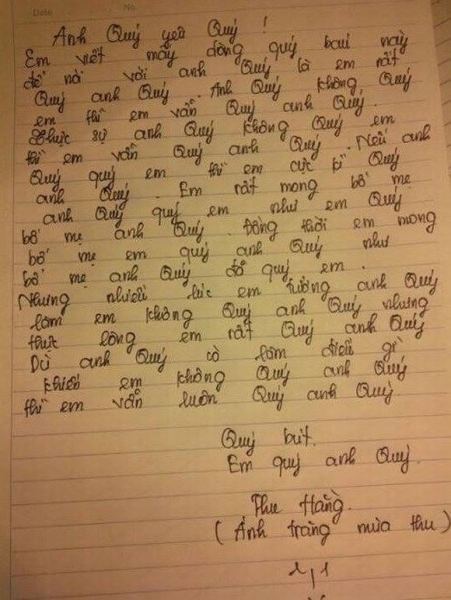 Date No.
Anh Quý yêu Quý !
Em viết mấy dòng quý báu này
để nói với anh Quý là em rất
Quý anh Quý. Anh Quý không Quý
em thì em vẫn Quý anh Quý.
Thực sự anh Quý không Quý em
thì em vẫn Quý anh Quý. Nếu anh
Quý quý em thì em cực kì Quý
anh Quý. Em rất mong bố mẹ
anh Quý quý em như em Quý
bố mẹ anh Quý. Đồng thời em mong
bố mẹ em quý anh Quý như
bố mẹ anh Quý đã quý em.
Nhưng nhiều lúc em tưởng anh Quý
làm em không Quý anh Quý nhưng
thực lòng em rất Quý anh Quý
Dù anh Quý có làm điều gì
khiến em không Quý anh Quý
thì em vẫn luôn Quý anh Quý
Quý bút.
Em quý anh Quý.
Thu Hằng.
( Ánh trăng mùa thu )